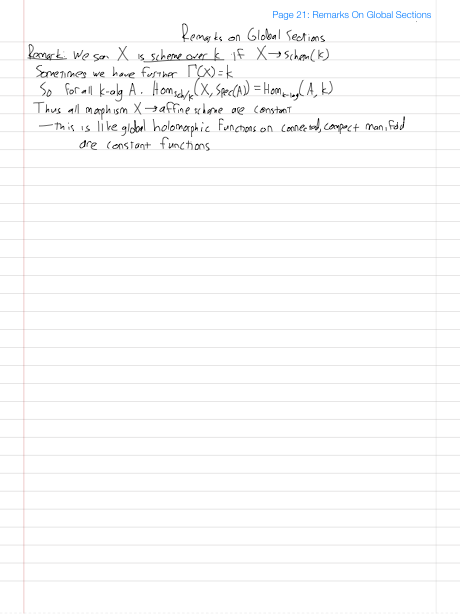 Page 21: Remarks On Global Sections
Remarks on Global Sections
Remark: We say X is scheme over k if X → Schem(k)
Sometimes we have further Γ(X) = k
So for all k-alg A. Hom_{sch/k}(X, Spec(A)) = Hom_{k-alg}(A, k)
Thus all morphism X → affine scheme are constant
— this is like global holomorphic functions on connected, compact manifold
are constant functions